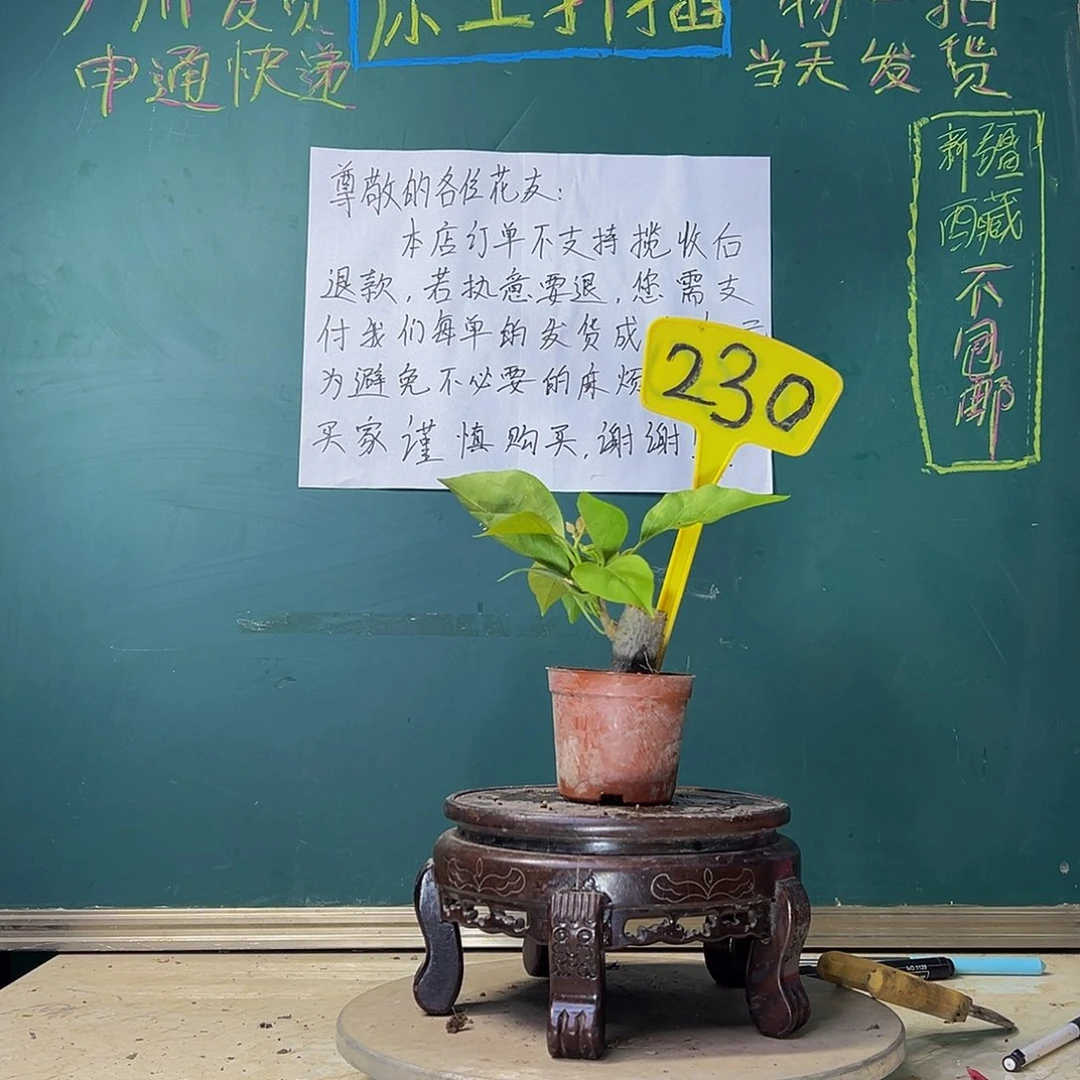 广州发货
原土扦插
物一拍
申通快递
当天发货
尊敬的各位花友:
本店订单不支持揽收后
退款,若执意要退,您需支
付我们每单的发货成
为避免不必要的麻烦
买家谨慎购买,谢谢!
230
新疆
西藏
不包邮
NO.1129